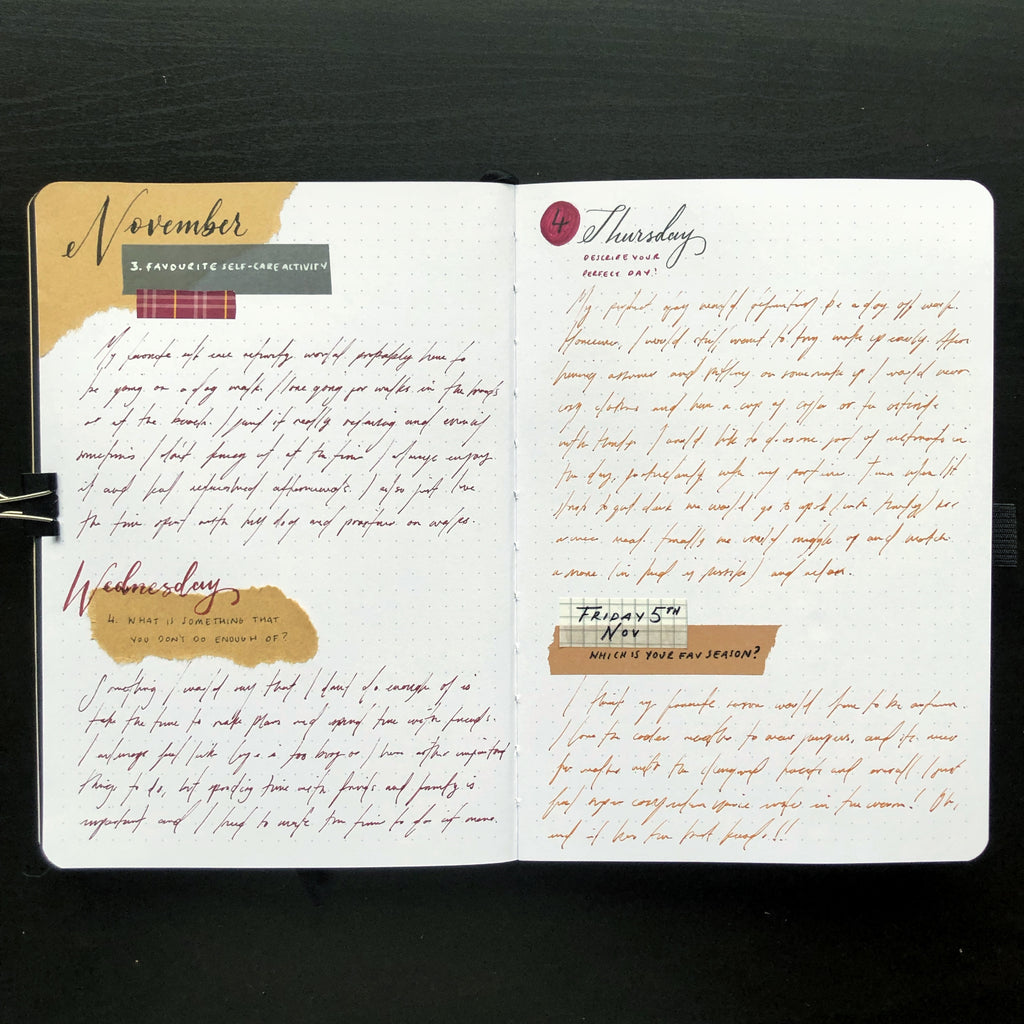 November
3. FAVOURITE SELF-CARE ACTIVITY
My favorite self care activity would probably have to
be going on a dog walk. I love going for walks in the woods
or at the beach. I find it really relaxing and even if
sometimes I don't fancy it at the time I always enjoy
it and feel refreshed afterwards. I also just love
the time spent with my dog and partner on walks.
Wednesday
4. WHAT IS SOMETHING THAT
YOU DON'T DO ENOUGH OF?
Something I would say that I don't do enough of is
take the time to make plans and spend time with friends.
I always feel like I am too busy or I have other important
things to do, but spending time with friends and family is
important and I need to make the time to do it more.
4 Thursday
DESCRIBE YOUR
PERFECT DAY!
My perfect day would definitely be a day off work.
However, I would still want to try wake up early. After
having a shower and putting on some make up I would wear
cosy clothes and have a cup of coffee or tea outside
with I would like to do some of in
the day, with my partner. when it
to get dark we would go to (with
a nice meal. Finally we would snuggle up and watch
a movie (in bed if possible) and relax.
FRIDAY 5TH
NOV
WHICH IS YOUR FAV SEASON?
I think my favorite season would have to be autumn.
I love the cooler weather, to wear jumpers, and it's nice
for walks with the changing and overall I just
feel super cosy when you're in the warm! Oh,
and it has the best food!!!